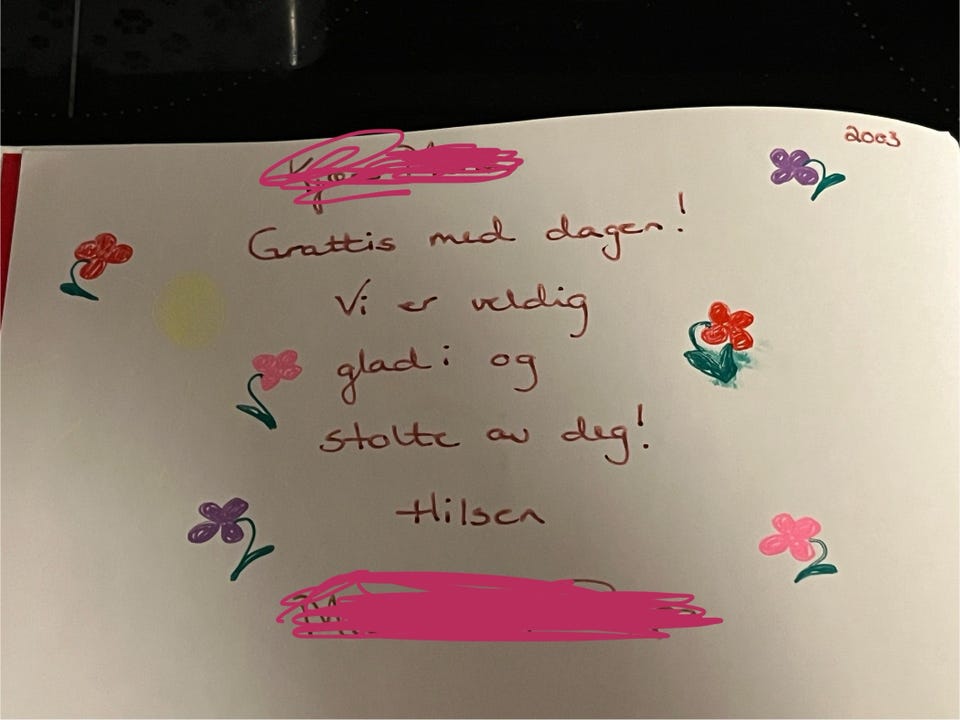 2003
Grattis med dagen!
Vi er veldig
glad i og
stolte av deg!
Hilsen